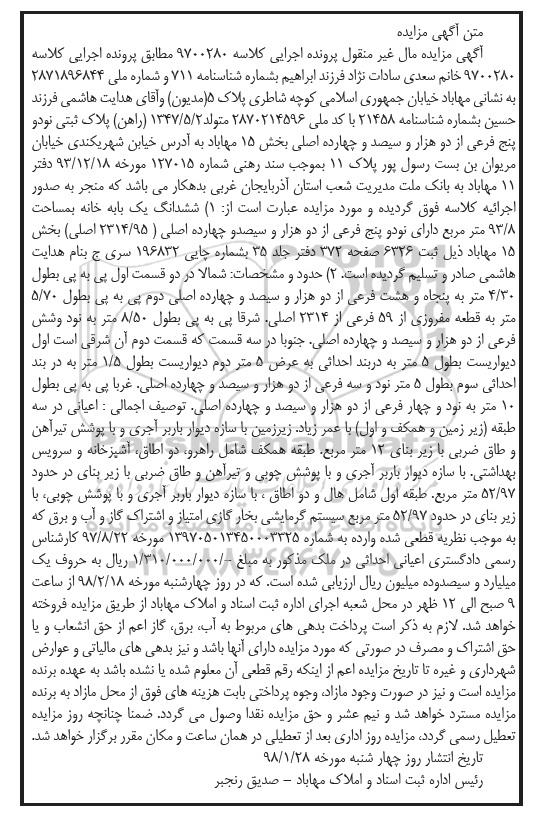 متن آگهی مزایده
آگهی مزایده مال غیر منقول پرونده اجرایی کلاسه ۹۷۰۰۲۸۰ مطابق پرونده اجرایی کلاسه
۹۷۰۰۲۸۰ خانم سعدی سادات نژاد فرزند ابراهیم بشماره شناسنامه ۷۱۱ و شماره ملی ۲۸۷۱۸۹۶۸۴۴
به نشانی مهاباد خیابان جمهوری اسلامی کوچه شاطری پلاک ۵(مدیون) وآقای هدایت هاشمی فرزند
حسین بشماره شناسنامه ۲۱۴۵۸ با کد ملی ۲۸۷۰۲۱۴۵۹۶ متولد۱۳۴۷/۵/۲ (راهن) پلاک ثبتی نودو
پنج فرعی از دو هزار و سیصد و چهارده اصلی بخش ۱۵ مهاباد به آدرس خیابن شهریکندی خیابان
مریوان بن بست رسول پور پلاک ۱۱ بموجب سند رهنی شماره ۱۲۷۰۱۵ مورخه ۹۳/۱۲/۱۸ دفتر
۱۱ مهاباد به بانک ملت مدیریت شعب استان آذربایجان غربی بدهکار می باشد که منجر به صدور
اجرائیه کلاسه فوق گردیده و مورد مزایده عبارت است از: ۱) ششدانگ یک بابه خانه بمساحت
۹۳/۸ متر مربع دارای نودو پنج فرعی از دو هزار و سیصدو چهارده اصلی ( ۲۳۱۴/۹۵ اصلی) بخش
۱۵ مهاباد ذیل ثبت ۶۳۲۶ صفحه ۳۷۲ دفتر جلد ۳۵ بشماره چاپی ۱۹۶۸۳۲ سری ج بنام هدایت
هاشمی صادر و تسلیم گردیده است. ۲) حدود و مشخصات: شمالا در دو قسمت اول پی به پی بطول
۴/۳۰ متر به پنجاه و هشت فرعی از دو هزار و سیصد و چهارده اصلی دوم پی به پی بطول ۵/۷۰
متر به قطعه مفروزی از ۵۹ فرعی از ۲۳۱۴ اصلی. شرقا پی به پی بطول ۸/۵۰ متر به نود وشش
فرعی از دو هزار و سیصد و چهارده اصلی. جنوبا در سه قسمت که قسمت دوم آن شرقی است اول
دیواریست بطول ۵ متر به دربند احداثی به عرض ۵ متر دوم دیواریست بطول ۱/۵ متر به در بند
احداثی سوم بطول ۵ متر نود و سه فرعی از دو هزار و سیصد و چهارده اصلی. غربا پی به پی بطول
۱۰ متر به نود و چهار فرعی از دو هزار و سیصد و چهارده اصلی. توصیف اجمالی : اعیانی در سه
طبقه (زیر زمین و همکف و اول) با عمر زیاد. زیرزمین با سازه دیوار باربر آجری و با پوشش تیرآهن
و طاق ضربی با زیر بنای ۱۲ متر مربع. طبقه همکف شامل راهرو، دو اطاق، آشپزخانه و سرویس
بهداشتی. با سازه دیوار باربر آجری و با پوشش چوبی و تیرآهن و طاق ضربی با زیر بنای در حدود
۵۲/۹۷ متر مربع. طبقه اول شامل هال و دو اطاق ، با سازه دیوار باربر آجری و با پوشش چوبی، با
زیر بنای در حدود ۵۲/۹۷ متر مربع سیستم گرمایشی بخار گازی امتیاز و اشتراک گاز و آب و برق که
به موجب نظریه قطعی شده وارده به شماره ۱۳۹۷۰۵۰۱۳۴۵۰۰۰۳۳۲۵ مورخه ۹۷/۸/۲۲ کارشناس
رسمی دادگستری اعیانی احداثی در ملک مذکور به مبلغ ۱/۳۱۰/۰۰۰/۰۰۰/- ریال به حروف یک
میلیارد و سیصدوده میلیون ریال ارزیابی شده است. که در روز چهارشنبه مورخه ۹۸/۲/۱۸ از ساعت
۹ صبح الی ۱۲ ظهر در محل شعبه اجرای اداره ثبت اسناد و املاک مهاباد از طریق مزایده فروخته
خواهد شد. لازم به ذکر است پرداخت بدهی های مربوط به آب، برق، گاز اعم از حق انشعاب و یا
حق اشتراک و مصرف در صورتی که مورد مزایده دارای آنها باشد و نیز بدهی های مالیاتی و عوارض
شهرداری و غیره تا تاریخ مزایده اعم از اینکه رقم قطعی آن معلوم شده یا نشده باشد به عهده برنده
مزایده است و نیز در صورت وجود مازاد، وجوه پرداختی بابت هزینه های فوق از محل مازاد به برنده
مزایده مسترد خواهد شد و نیم عشر و حق مزایده نقدا وصول می گردد. ضمنا چنانچه روز مزایده
تعطیل رسمی گردد، مزایده روز اداری بعد از تعطیلی در همان ساعت و مکان مقرر برگزار خواهد شد.
تاریخ انتشار روز چهار شنبه مورخه ۹۸/۱/۲۸
رئیس اداره ثبت اسناد و املاک مهاباد – صدیق رنجبر